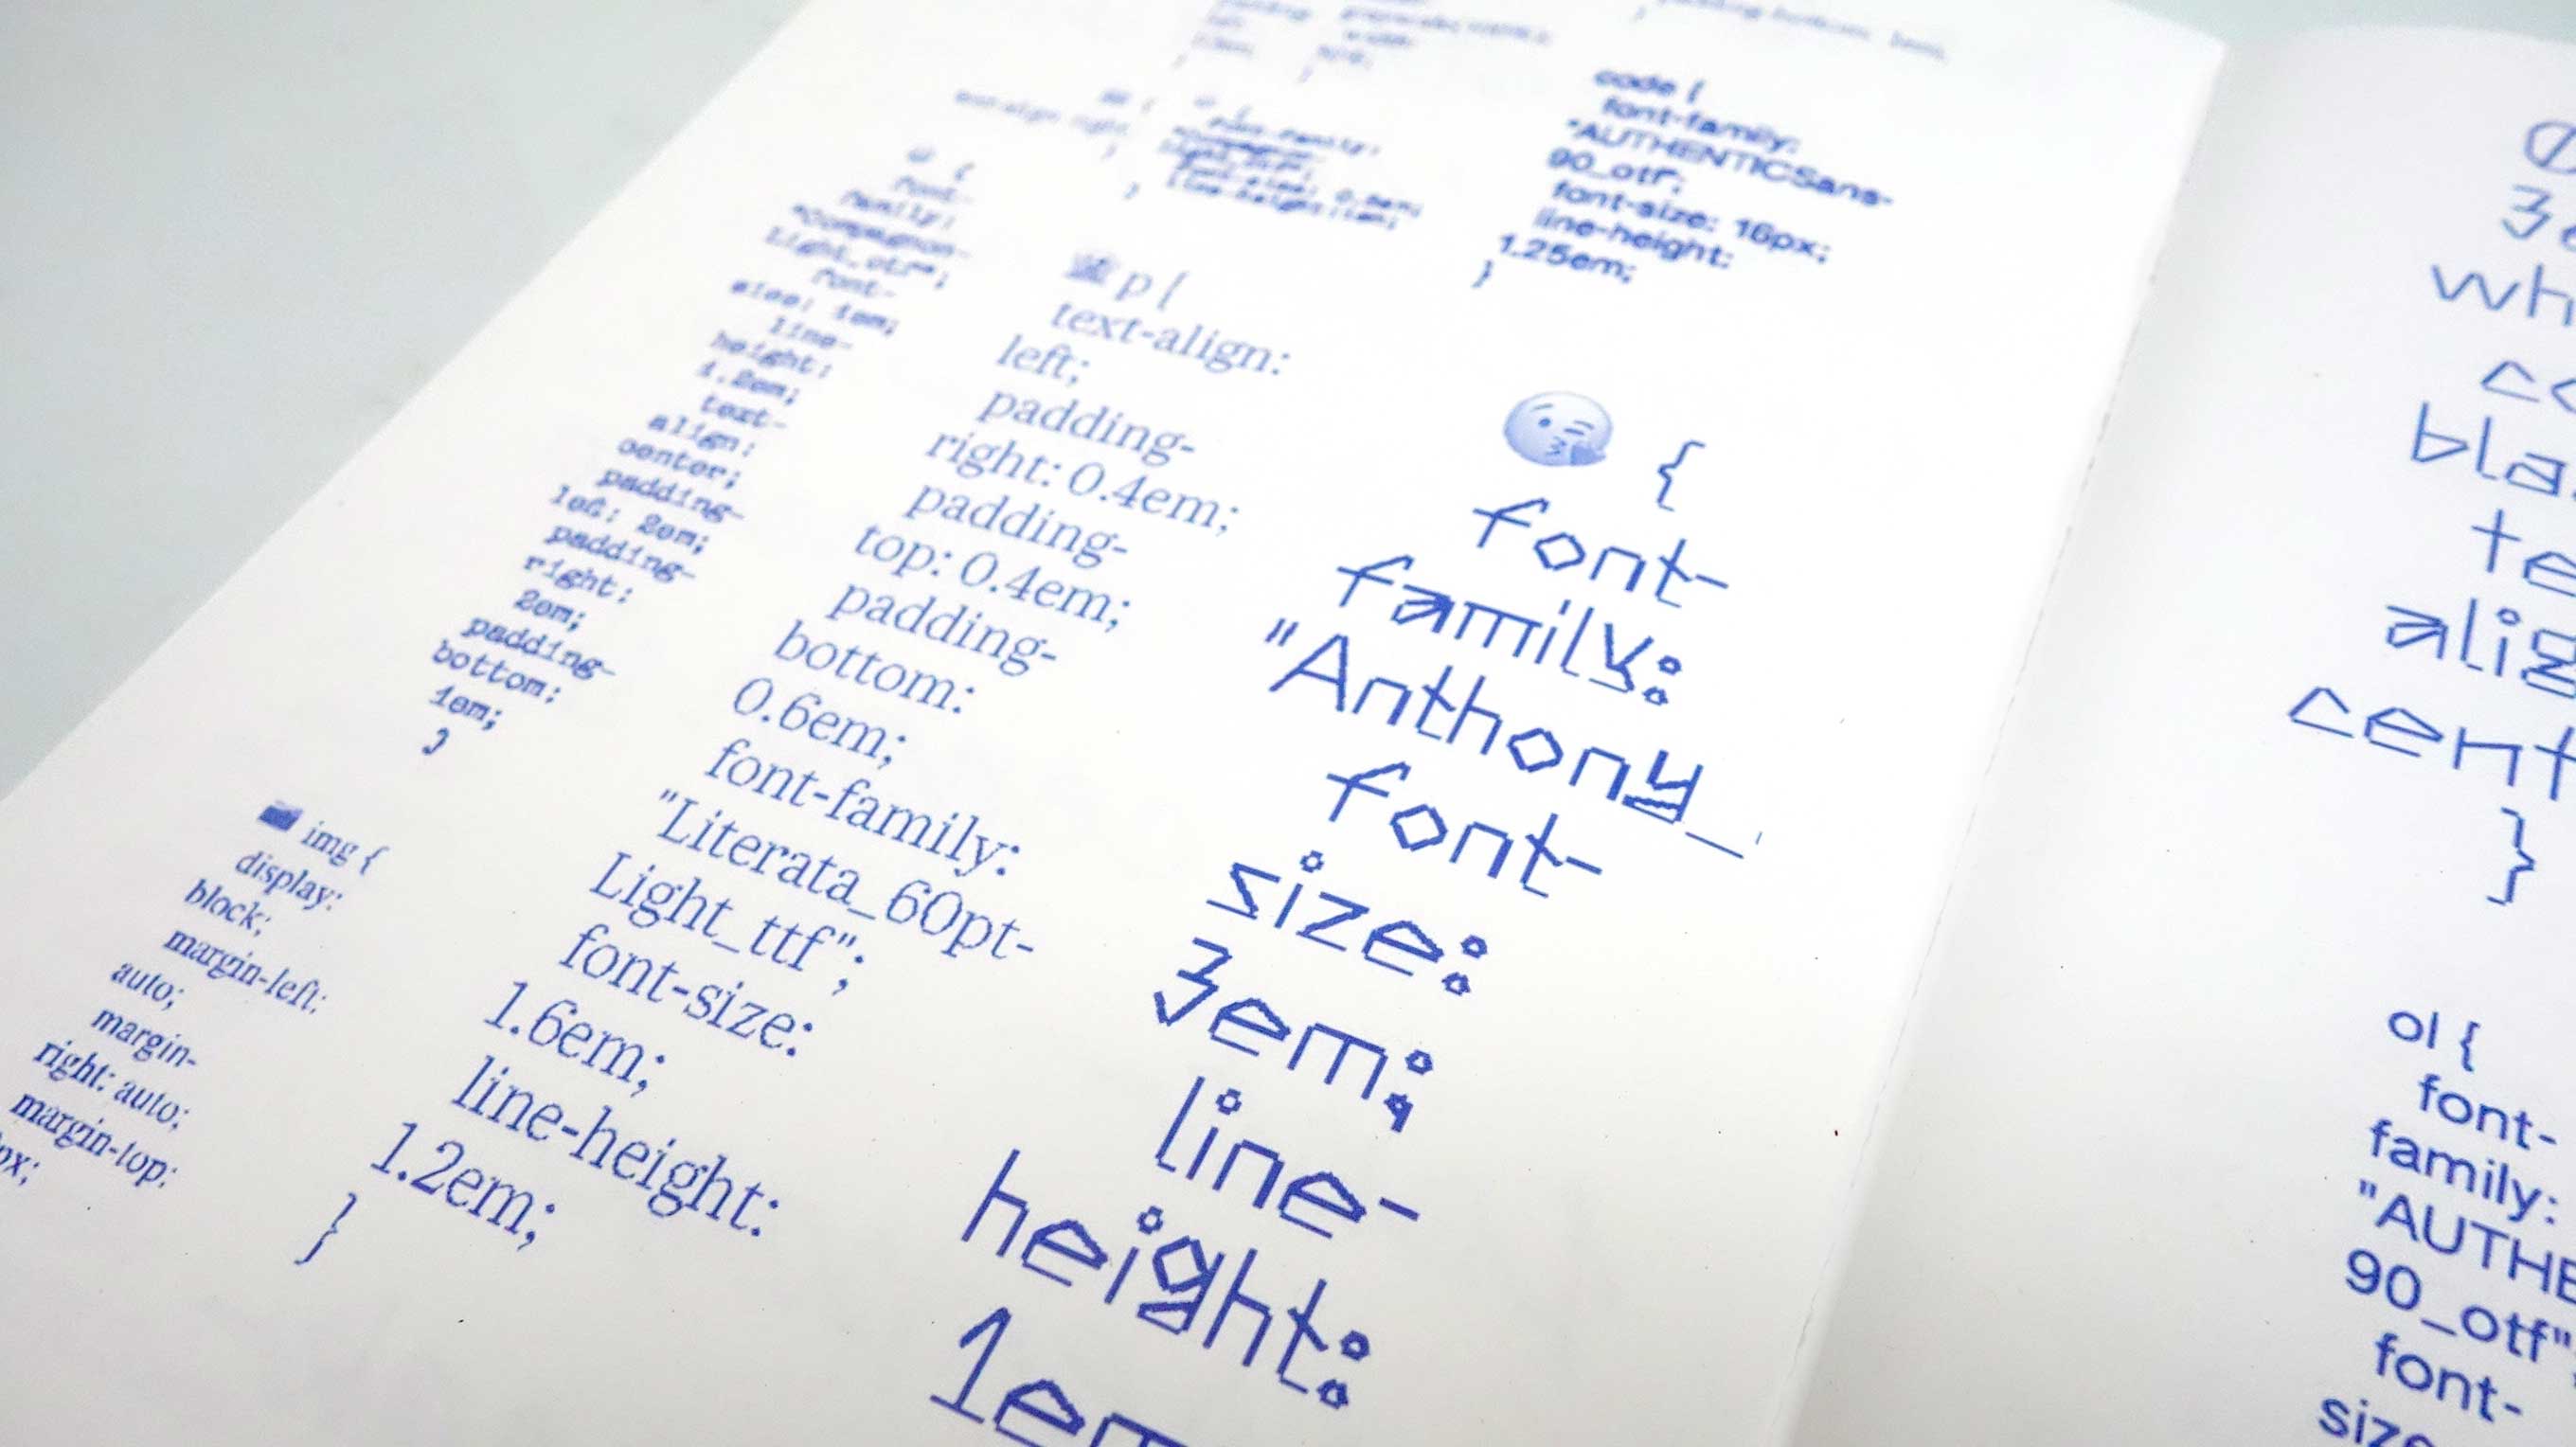 code {
font-family:
"AUTHENTICSans-
90_otf";
font-size: 16px;
line-height:
1.25em;
}
{
font-
family:
"Compagnon-
Light_otf";
font-
size: 1em;
line-
height:
1.2em;
text-
align:
center;
padding-
left: 2em;
padding-
right:
2em;
padding-
bottom:
1em;
}
img {
display:
block;
margin-left:
auto;
margin-
right: auto;
margin-top:
px;
p {
text-align:
left;
padding-
right: 0.4em;
padding-
top: 0.4em;
padding-
bottom:
0.6em;
font-family:
"Literata_60pt-
Light_ttf";
font-size:
1.6em;
line-height:
1.2em;
}
😪 {
font-
family:
"Anthony_
font-
size:
3em;
line-
height:
1em
3e
wh
bla
te
alig
cent
}
ol {
font-
family:
"AUTHE
90_otf"
font-
size